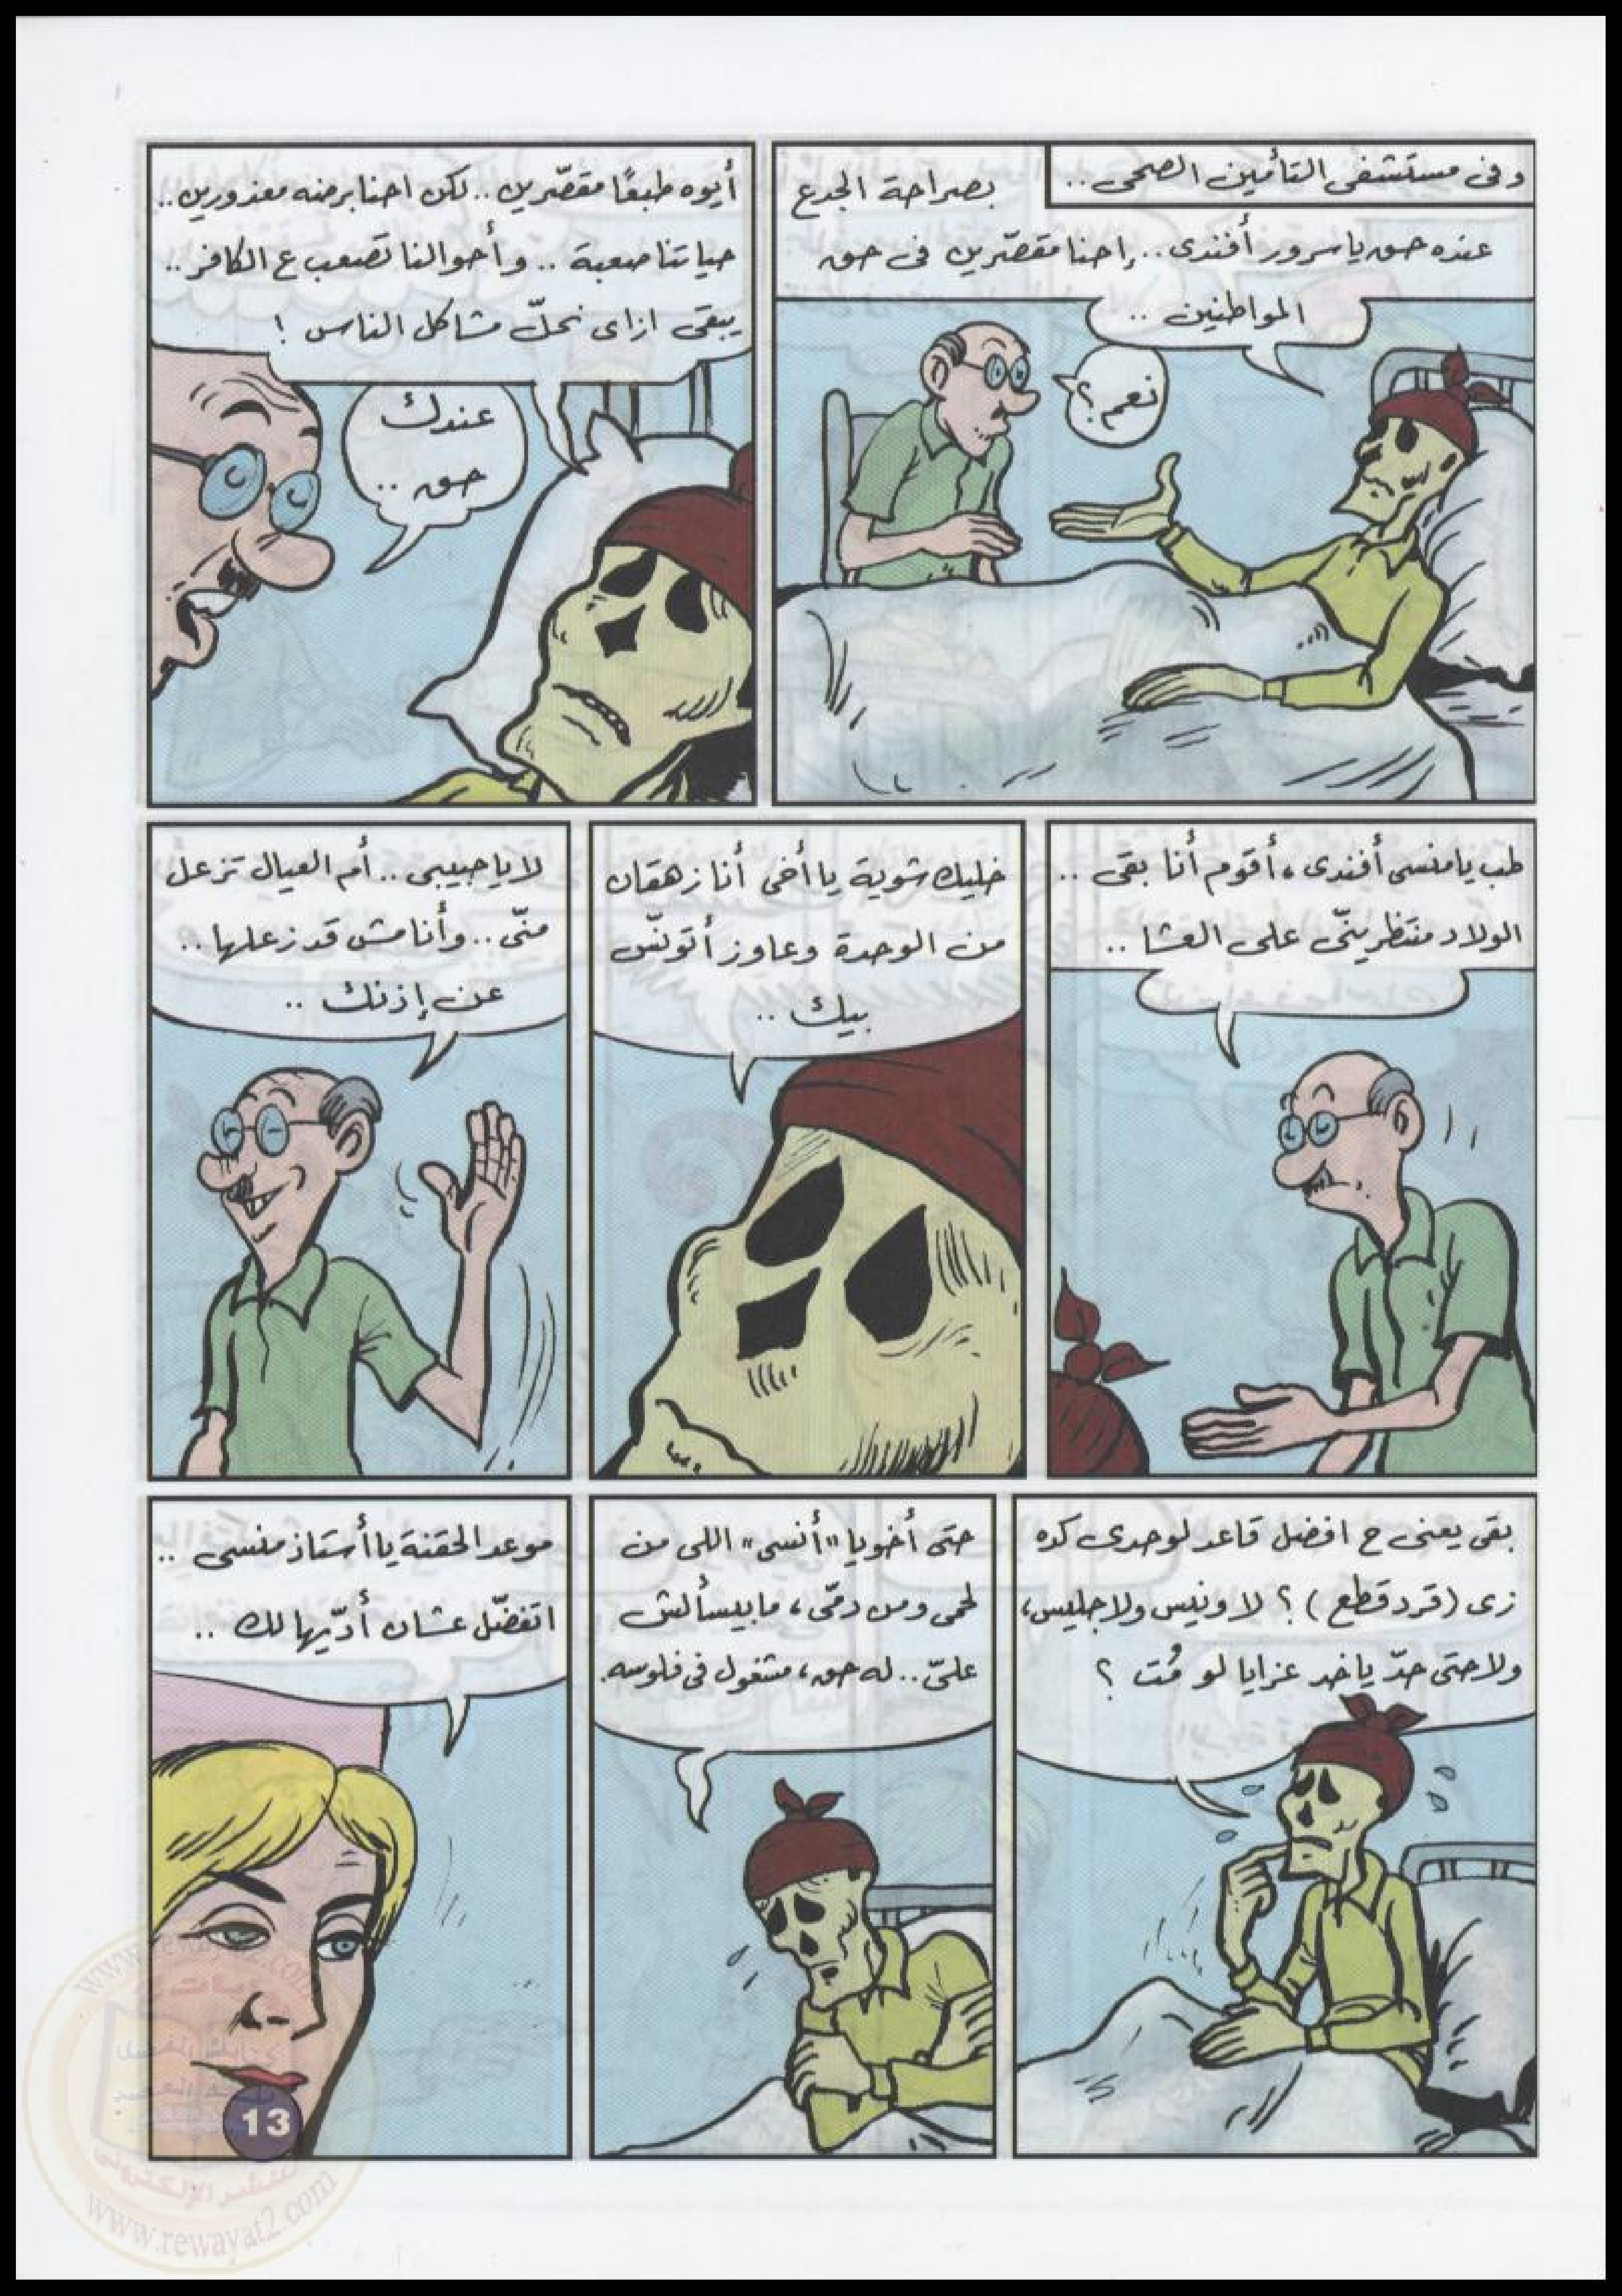 وفى مستشفى التأمين الصحى..
بصراحة الجدع
عنده حق يا سرور أفندى.. إحنا مقصّرين فى حق
المواطنين ..
نعم؟
أيوه طبعًا مقصّرين.. لكن احنا برضه معذورين..
حياتنا صعبة .. وأحوالنا تصعب ع الكافر..
يبقى ازاى نحلّ مشاكل الناس !
عندك
حق ..
طب يا منسى أفندى، أقوم أنا بقى ..
الولاد منتظرينّى على العشا ..
خليك شوية يا أخى أنا زهقان
من الوحدة وعاوز أتونّس
بيك ..
لا يا حبيبى.. أم العيال تزعل
منّى.. وأنا مش قد زعلها..
عن إذنك ..
بقى يعنى ح افضل قاعد لوحدى كده
زى (قرد قطع) ؟ لا ونيس ولا جليس،
ولا حتى حدّ ياخد عزايا لو مُت ؟
حتى أخويا "أنسى" اللى من
لحمى ومن دمّى، ما بيسألش
علىّ.. له حق، مشغول فى فلوسه.
موعد الحقنة يا أستاذ منسى ..
اتفضّل عشان أدّيها لك ..
13
www.rewayat2.com